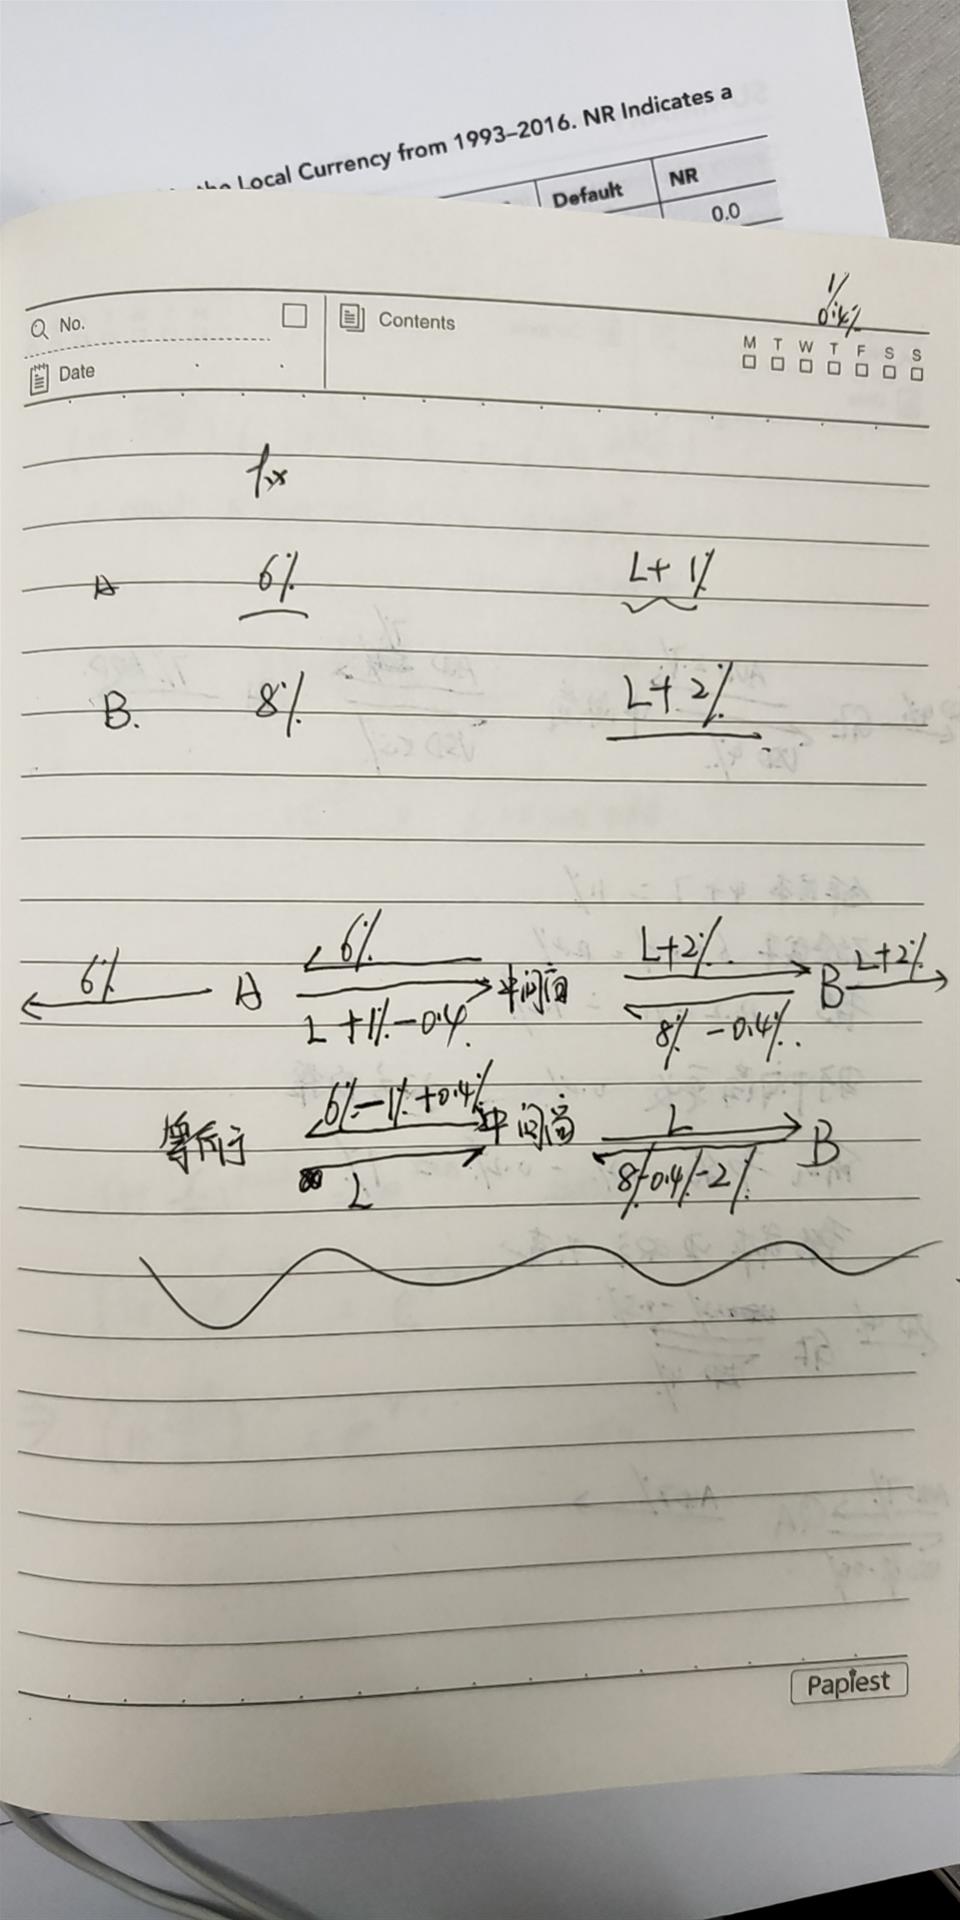 Local Currency from 1993–2016. NR Indicates a
Default NR
0.0
No. Contents
1%
0.4%
Date
M T W T F S S
fix
A 6% L+1%
B. 8% L+2%
6% A 6% 中间商 L+2% B L+2%
L+1%-0.4 8%-0.4%
等价于 6%-1%+0.4% 中间商 L B
L 8%-0.4%-2%
Papiest